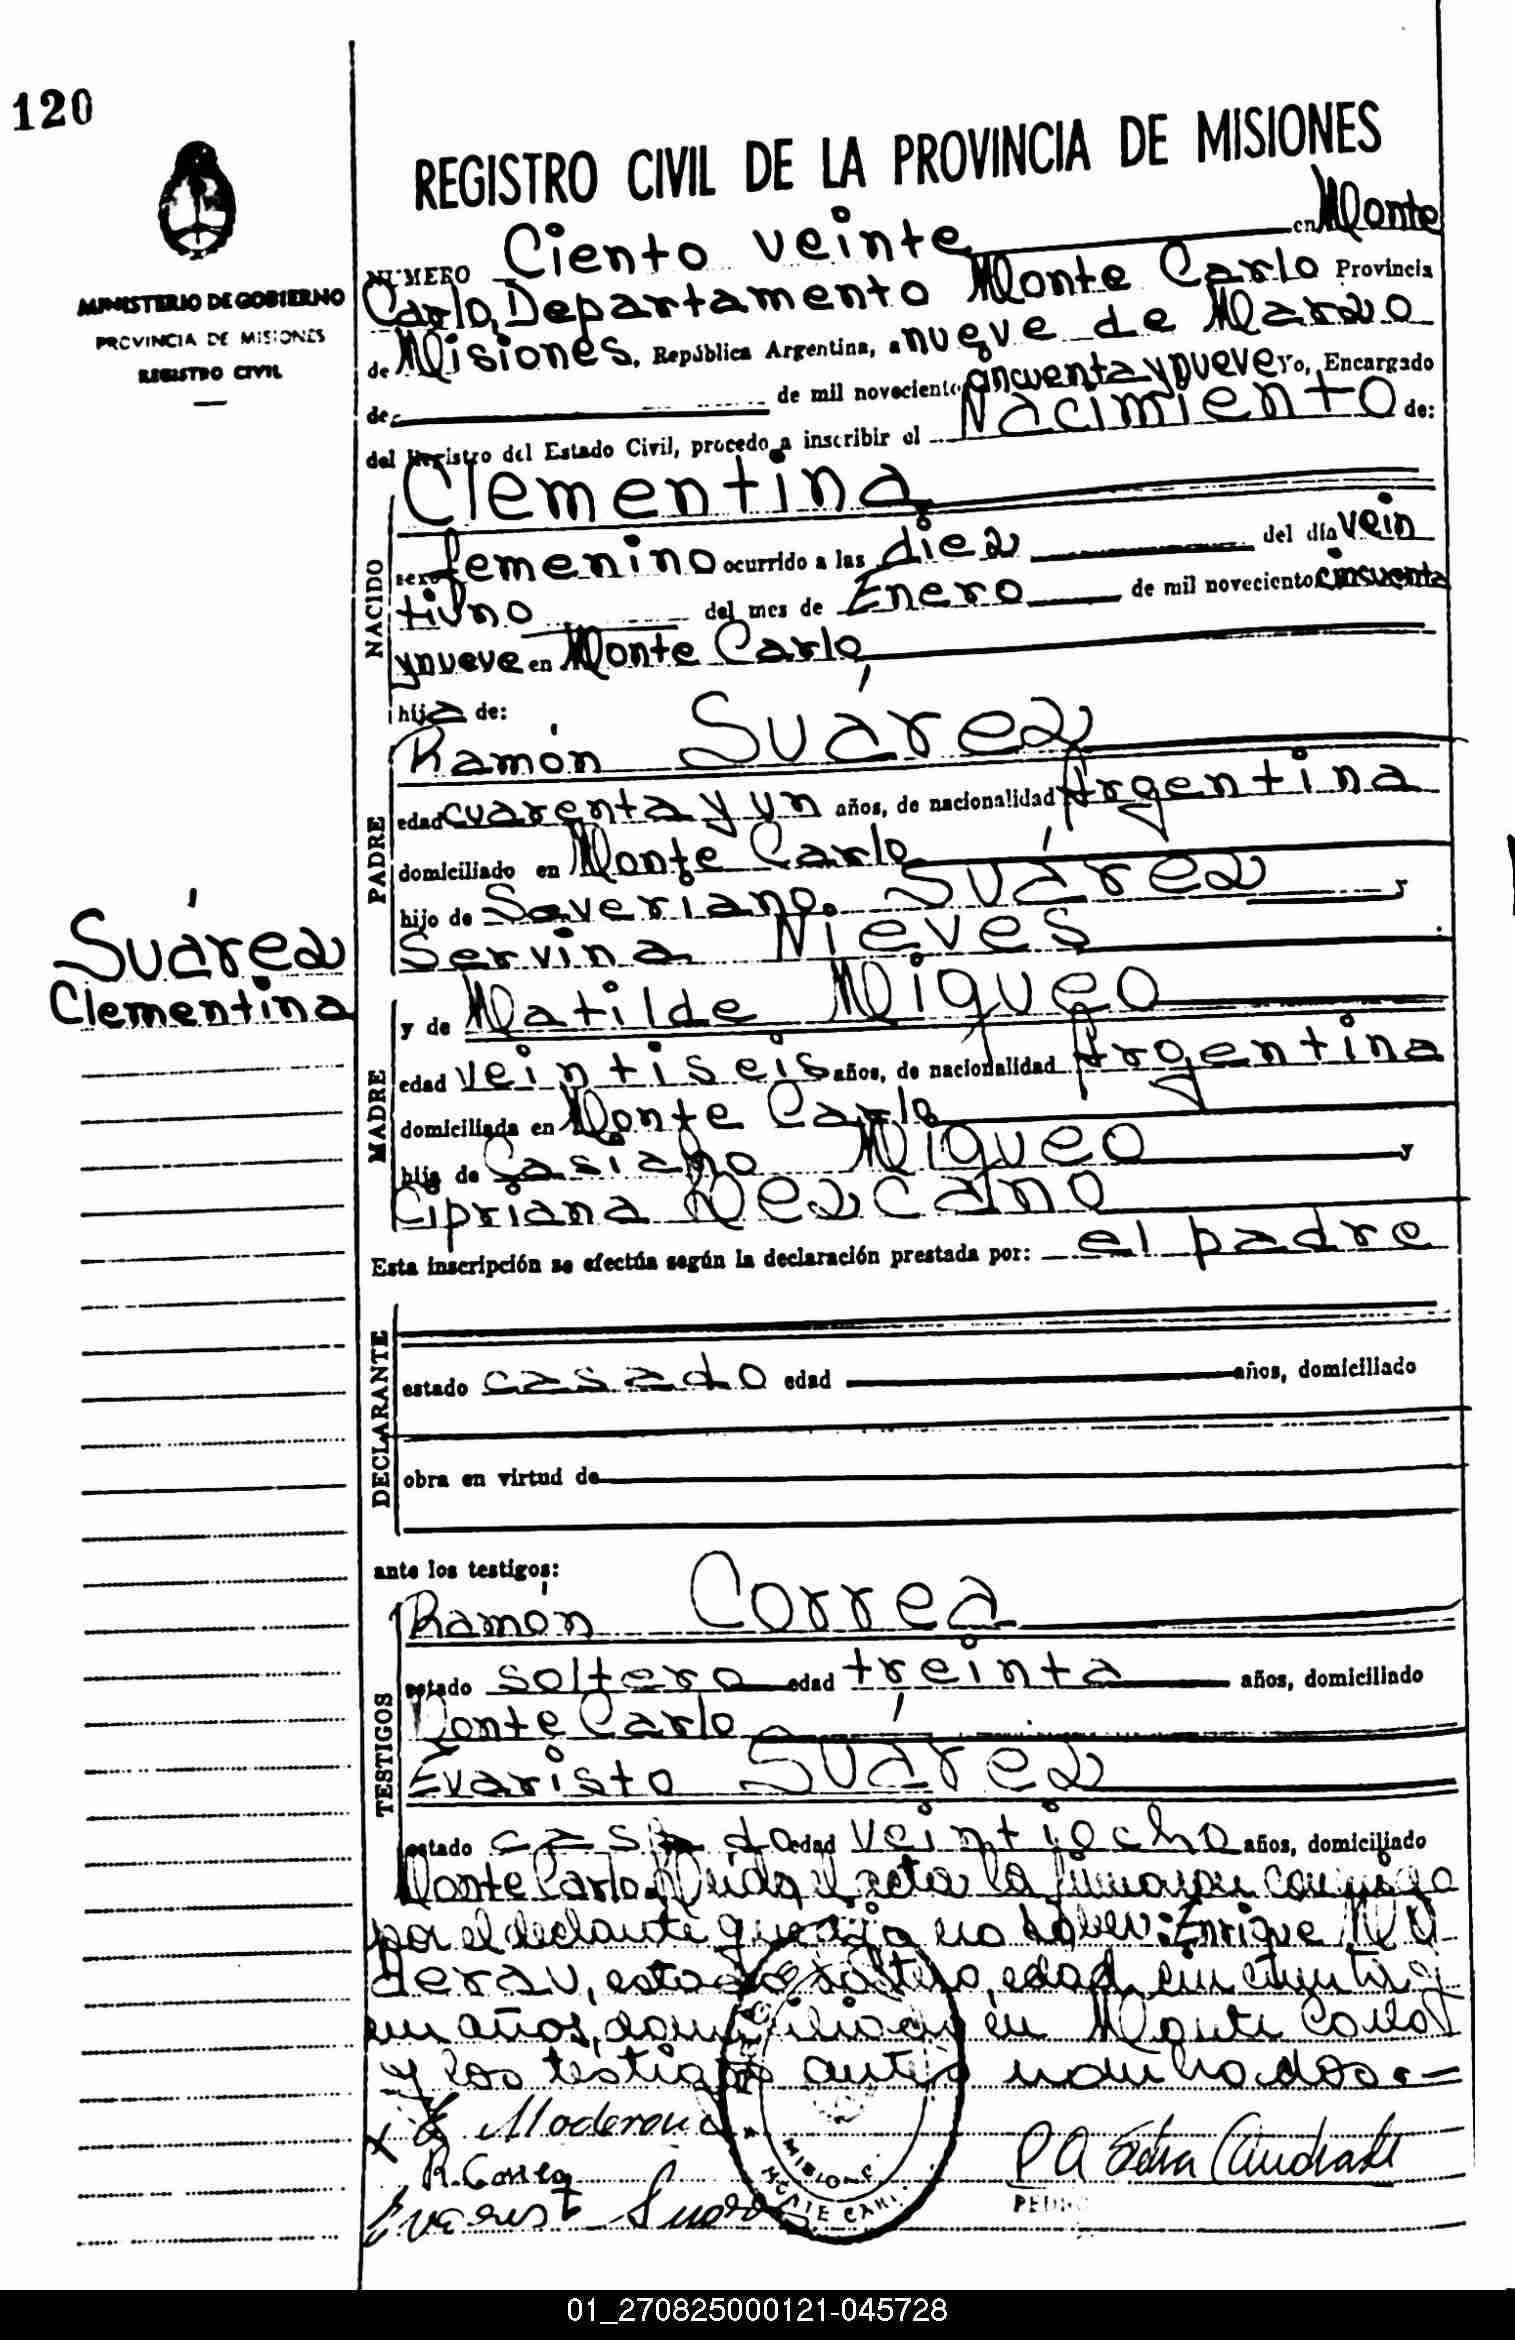 120
REGISTRO CIVIL DE LA PROVINCIA DE MISIONES
MINISTERIO DE GOBIERNO
PROVINCIA DE MISIONES
REGISTRO CIVIL
NUMERO Ciento veinte en Monte
Carlo, Departamento Monte Carlo Provincia
de Misiones, República Argentina, a nueve de Marzo
de de mil novecientos cincuenta y nueve Yo, Encargado
del Registro del Estado Civil, procedo a inscribir el Nacimiento de:
NACIDO
Clementina
sexo femenino ocurrido a las diez del día vein
tiuno del mes de Enero de mil novecientos cincuenta
y nueve en Monte Carlo
hija de:
PADRE
Ramón Suárez
edad cuarenta y un años, de nacionalidad Argentina
domiciliado en Monte Carlo
hijo de Saveriano Suárez y
Servina Nieves
Suárez
Clementina
MADRE
y de Matilde Miqueo
edad veintiseis años, de nacionalidad Argentina
domiciliada en Monte Carlo
hija de Casiano Miqueo y
Cipriana Dezcano
Esta inscripción se efectúa según la declaración prestada por: el padre
DECLARANTE
estado casado edad años, domiciliado
obra en virtud de
ante los testigos:
TESTIGOS
Ramón Correa
estado soltero edad treinta años, domiciliado
Monte Carlo
Evaristo Suárez
estado casado edad veintiocho años, domiciliado
Monte Carlo. Leida el acta la firmaron conmigo
por el declarante que dijo no saber: Enrique
estado soltero, edad cincuenta y
un años, domiciliado en Monte Carlo
y los testigos antes nombrados.=
R. Correa
Evarist Suarez
MISIONES
MONTE CARLO
PEDRO
01_270825000121-045728